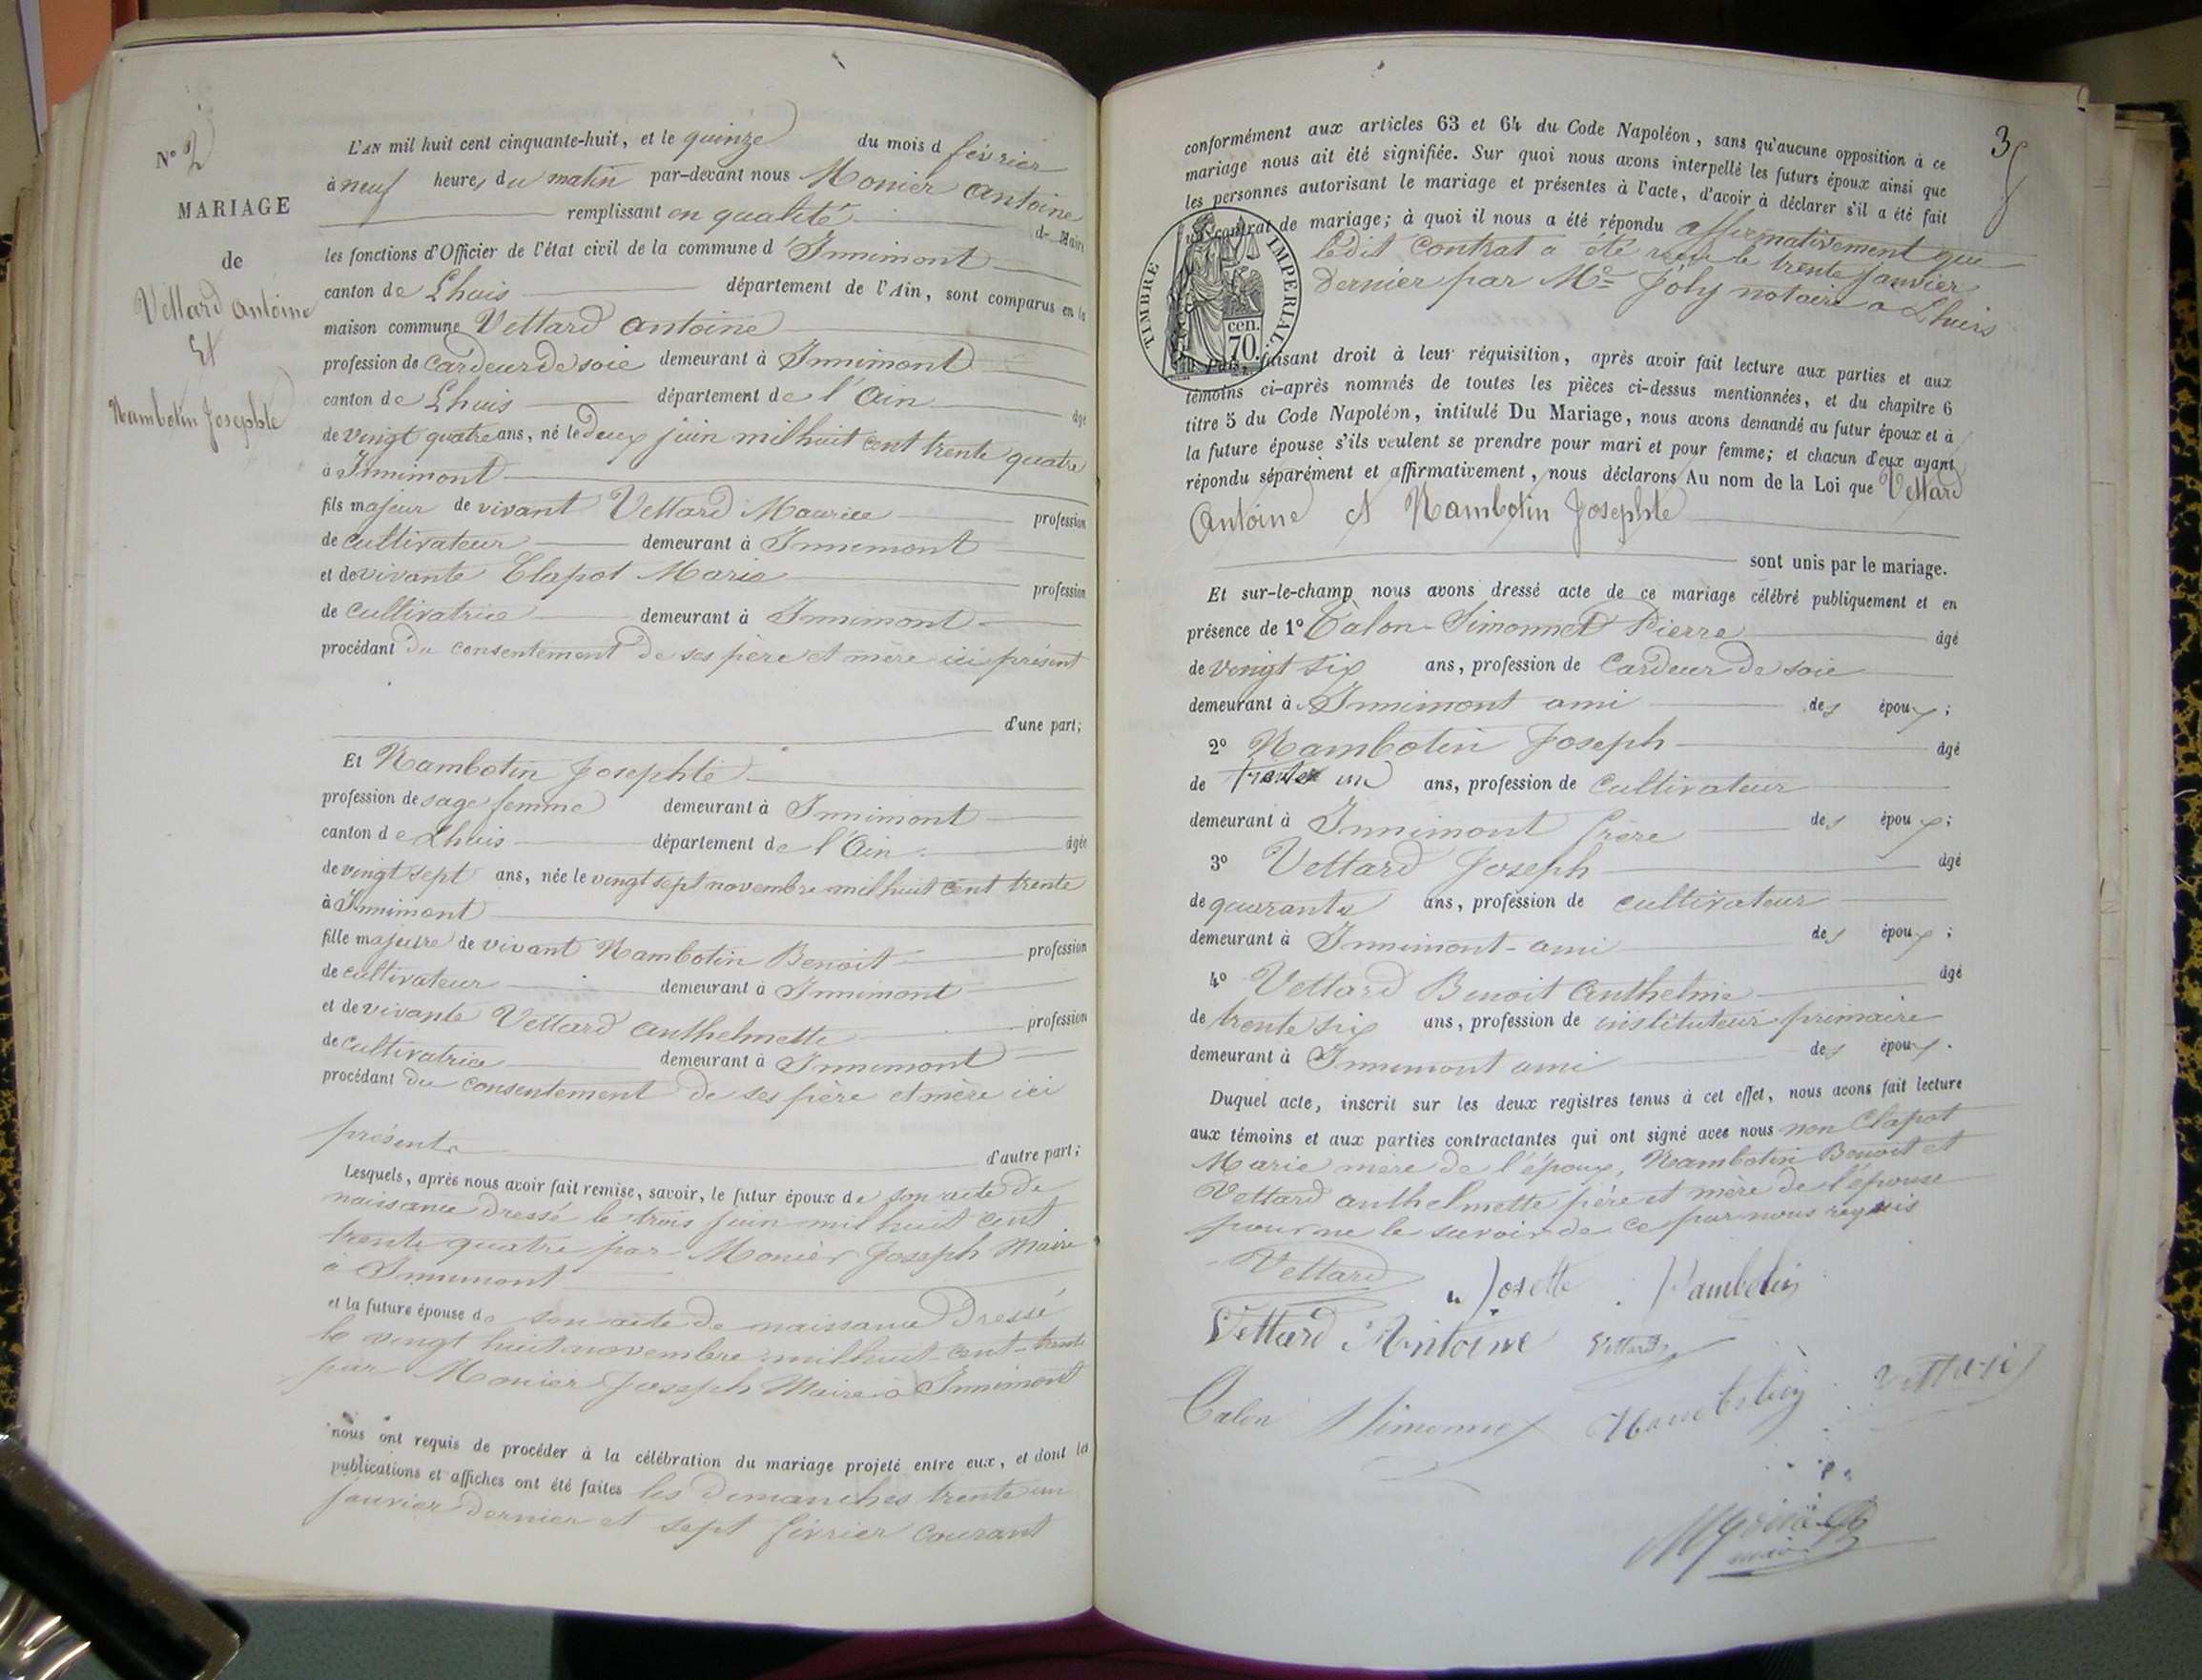 N° 2
MARIAGE
de
Vettard Antoine
Et
Nambotin Josephte
L'AN mil huit cent cinquante-huit, et le quinze du mois d février
à neuf heures du matin par-devant nous Monier Antoine
remplissant en qualité de Maire
les fonctions d'Officier de l'état civil de la commune d'Innimont
canton de Lhuis département de l'Ain, sont comparus en la
maison commune Vettard Antoine
profession de Cardeur de soie demeurant à Innimont
canton de Lhuis département de l'Ain âgé
de vingt quatre ans, né le deux juin mil huit cent trente quatre
à Innimont
fils majeur de vivant Vettard Maurice profession
de cultivateur demeurant à Innimont
et de vivante Clapot Marie profession
de cultivatrice demeurant à Innimont
procédant du consentement de ses père et mère ici présent
d'une part;
Et Nambotin Josephte
profession de sage femme demeurant à Innimont
canton de Lhuis département de l'Ain âgée
de vingt sept ans, née le vingt sept novembre mil huit cent trente
à Innimont
fille majeure de vivant Nambotin Benoit profession
de cultivateur demeurant à Innimont
et de vivante Vettard Anthelmette profession
de cultivatrice demeurant à Innimont
procédant du consentement de ses père et mère ici
présents
d'autre part;
Lesquels, après nous avoir fait remise, savoir, le futur époux de son acte de
naissance dressé le trois juin mil huit cent
trente quatre par Monier Joseph Maire
à Innimont
et la future épouse de son acte de naissance Dressé
le vingt huit novembre mil huit cent trente
par Monier Joseph Maire à Innimont
nous ont requis de procéder à la célébration du mariage projeté entre eux, et dont les
publications et affiches ont été faites les dimanches trente un
janvier dernier et sept février courant
3
conformément aux articles 63 et 64 du Code Napoléon, sans qu'aucune opposition à ce
mariage nous ait été signifiée. Sur quoi nous avons interpellé les futurs époux ainsi que
les personnes autorisant le mariage et présentes à l'acte, d'avoir à déclarer s'il a été fait
un contrat de mariage; à quoi il nous a été répondu affirmativement que
ledit contrat a été reçu le trente janvier
dernier par Me Joly notaire à Lhuis
TIMBRE IMPERIAL
70 cen.
Puis, faisant droit à leur réquisition, après avoir fait lecture aux parties et aux
témoins ci-après nommés de toutes les pièces ci-dessus mentionnées, et du chapitre 6
titre 5 du Code Napoléon, intitulé Du Mariage, nous avons demandé au futur époux et à
la future épouse s'ils veulent se prendre pour mari et pour femme; et chacun d'eux ayant
répondu séparément et affirmativement, nous déclarons Au nom de la Loi que Vettard
Antoine et Nambotin Josephte
sont unis par le mariage.
Et sur-le-champ nous avons dressé acte de ce mariage célébré publiquement et en
présence de 1° Calon-Simonnet Pierre âgé
de vingt six ans, profession de Cardeur de soie
demeurant à Innimont ami des époux;
2° Nambotin Joseph âgé
de trente un ans, profession de cultivateur
demeurant à Innimont frère des époux;
3° Vettard Joseph âgé
de quarante ans, profession de cultivateur
demeurant à Innimont ami des époux;
4° Vettard Benoit Anthelme âgé
de trente six ans, profession de instituteur primaire
demeurant à Innimont ami des époux.
Duquel acte, inscrit sur les deux registres tenus à cet effet, nous avons fait lecture
aux témoins et aux parties contractantes qui ont signé avec nous non Clapot
Marie mère de l'époux, Nambotin Benoit et
Vettard Anthelmette père et mère de l'épouse
pour ne le savoir de ce par nous requis
Vettard Josette Nambotin
Vettard Antoine Vettard
Calon Simonnet Nambotin Vettard
Monier
maire